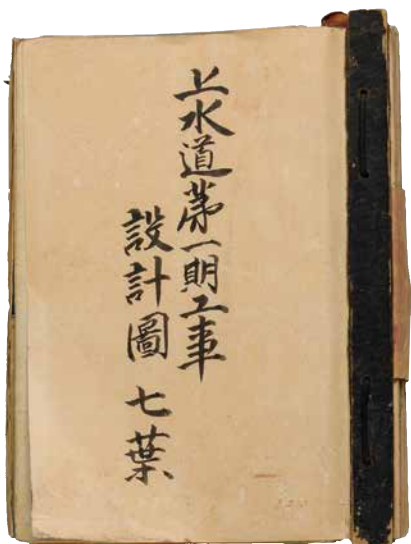 上水道第一期工事
設計圖七葉